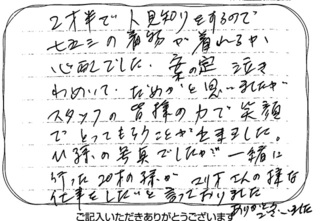 2才半で人見知りをするので
七五三の着物が着れるか
心配でした。案の定 泣き
わめいて、だめかと思いましたが
スタッフの皆様の力で笑顔
でとってもらうことが出来ました。
の写真でしたが 一緒に
行った20才の様が 21才 さんの様な
仕事をしたいと言っておりました
ありがとうございました
ご記入いただきありがとうございます